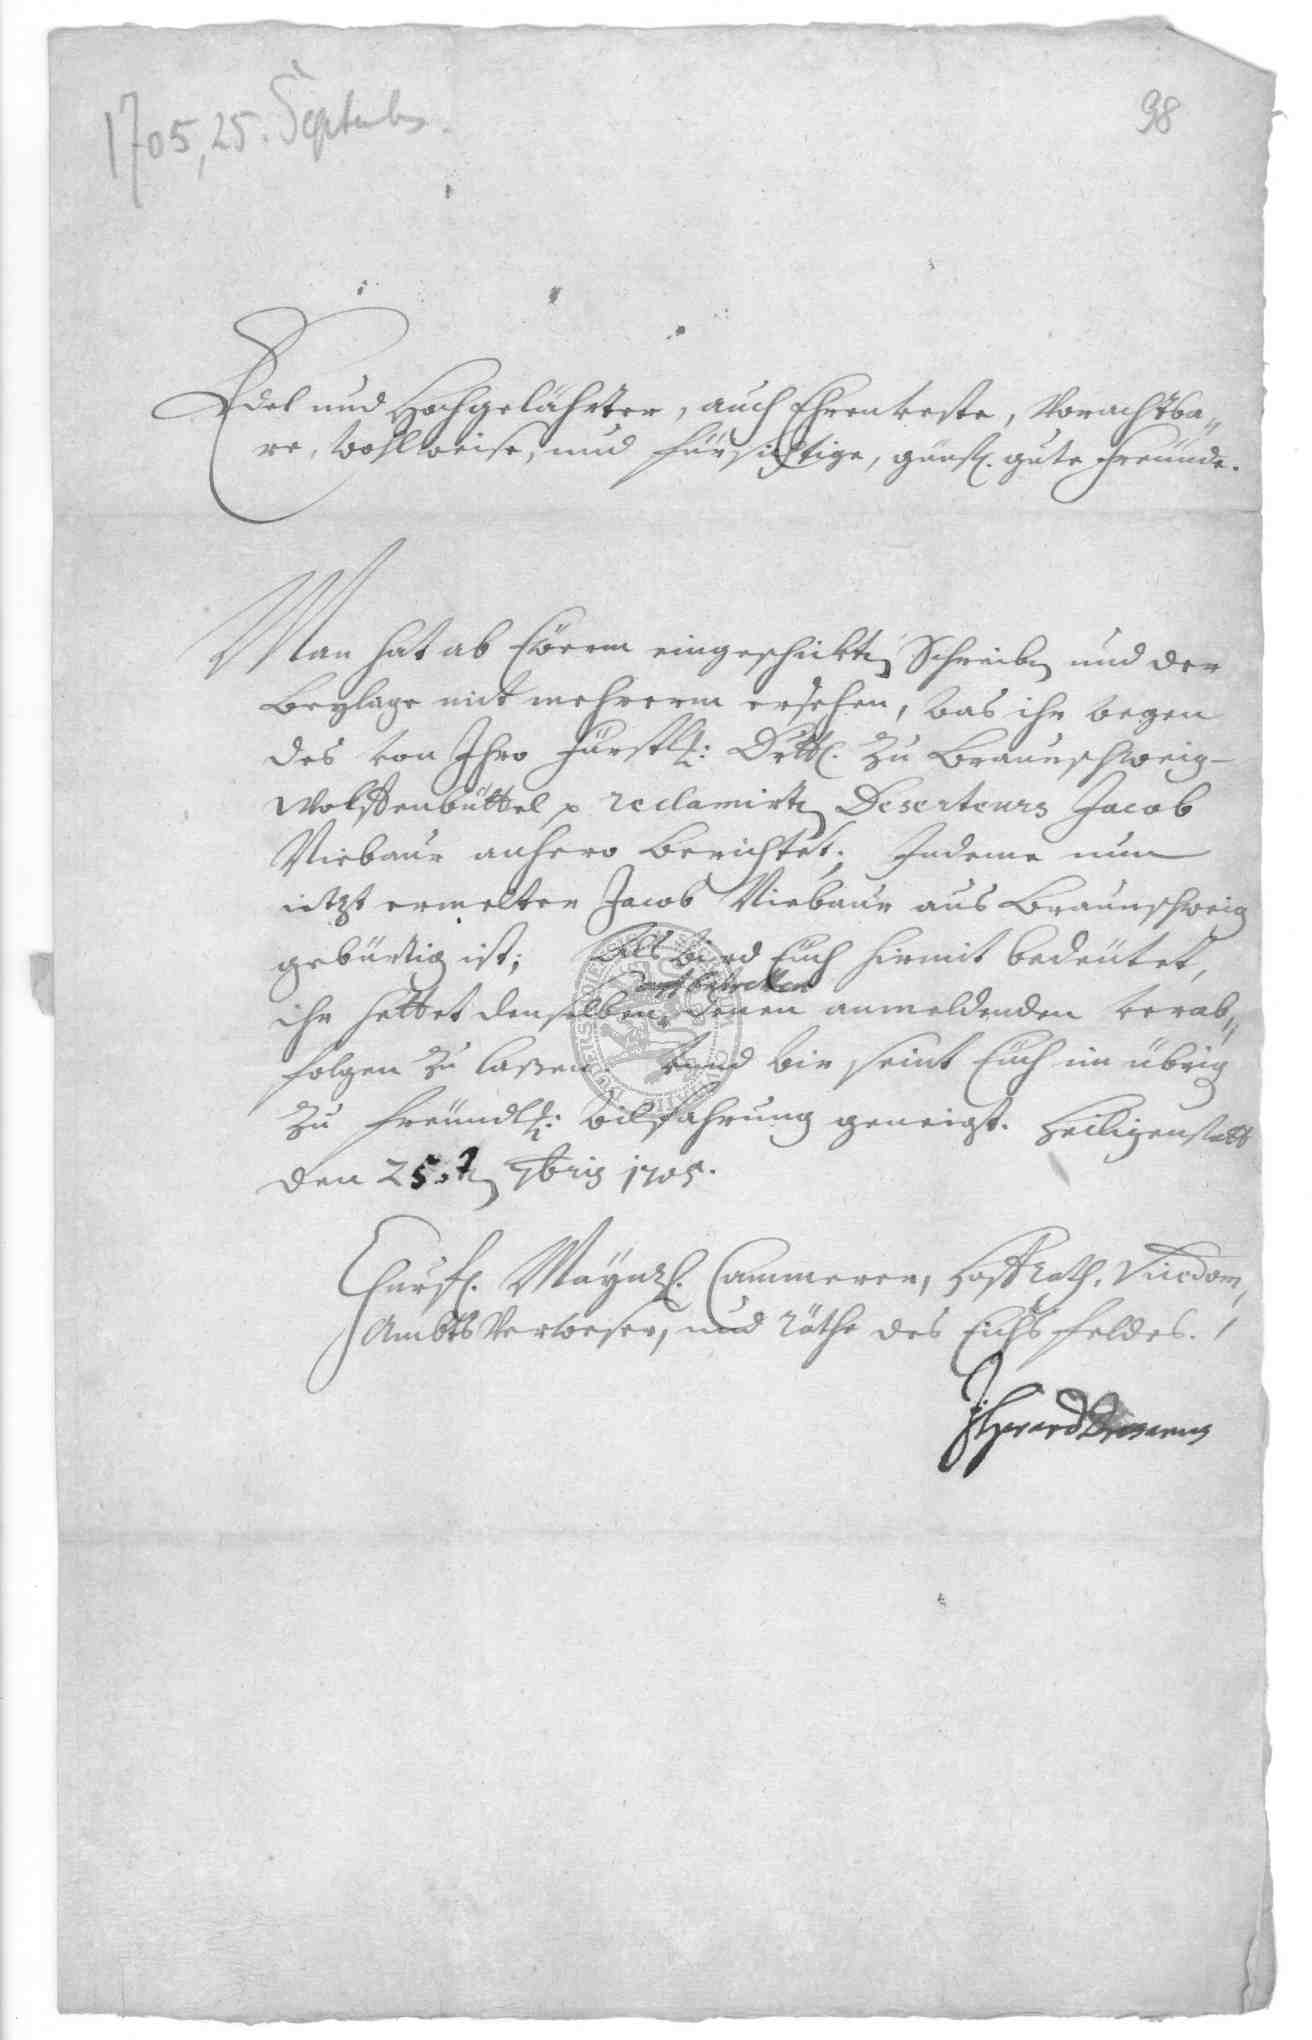 1705, 25. September.
98
Edel und Hochgelährter, auch Ehrenveste, Vorachtba„
re, wohlweise, und fürsichtige, günst. gute Freünde.
Man hat ab Ewerm eingeschickten Schreiben und der
Beylage mit mehrerm ersehen, was ihr wegen
des von Ihro Fürstl: Drttl. zu Braunschweig-
Wolffenbüttel p reclamirten Deserteurs Jacob
Niebaur anhero berichtet; Indeme nun
itzt ermelter Jacob Niebaur aus Braunschweig
gebürtig ist; Als wird Euch hiermit bedeütet,
ihr hettet denselben denen anmeldenden verab„
folgen zu laßen. Und wir seint Euch im übrig
zu freündl: wilfahrung geneigt. Heiligenstatt
den 25.ten 7bris 1705.
Churf. Mäyntz. Cammerer, HoffRath, Vicedom,
Ambts Verweser, und Räthe des Eichsfeldes.